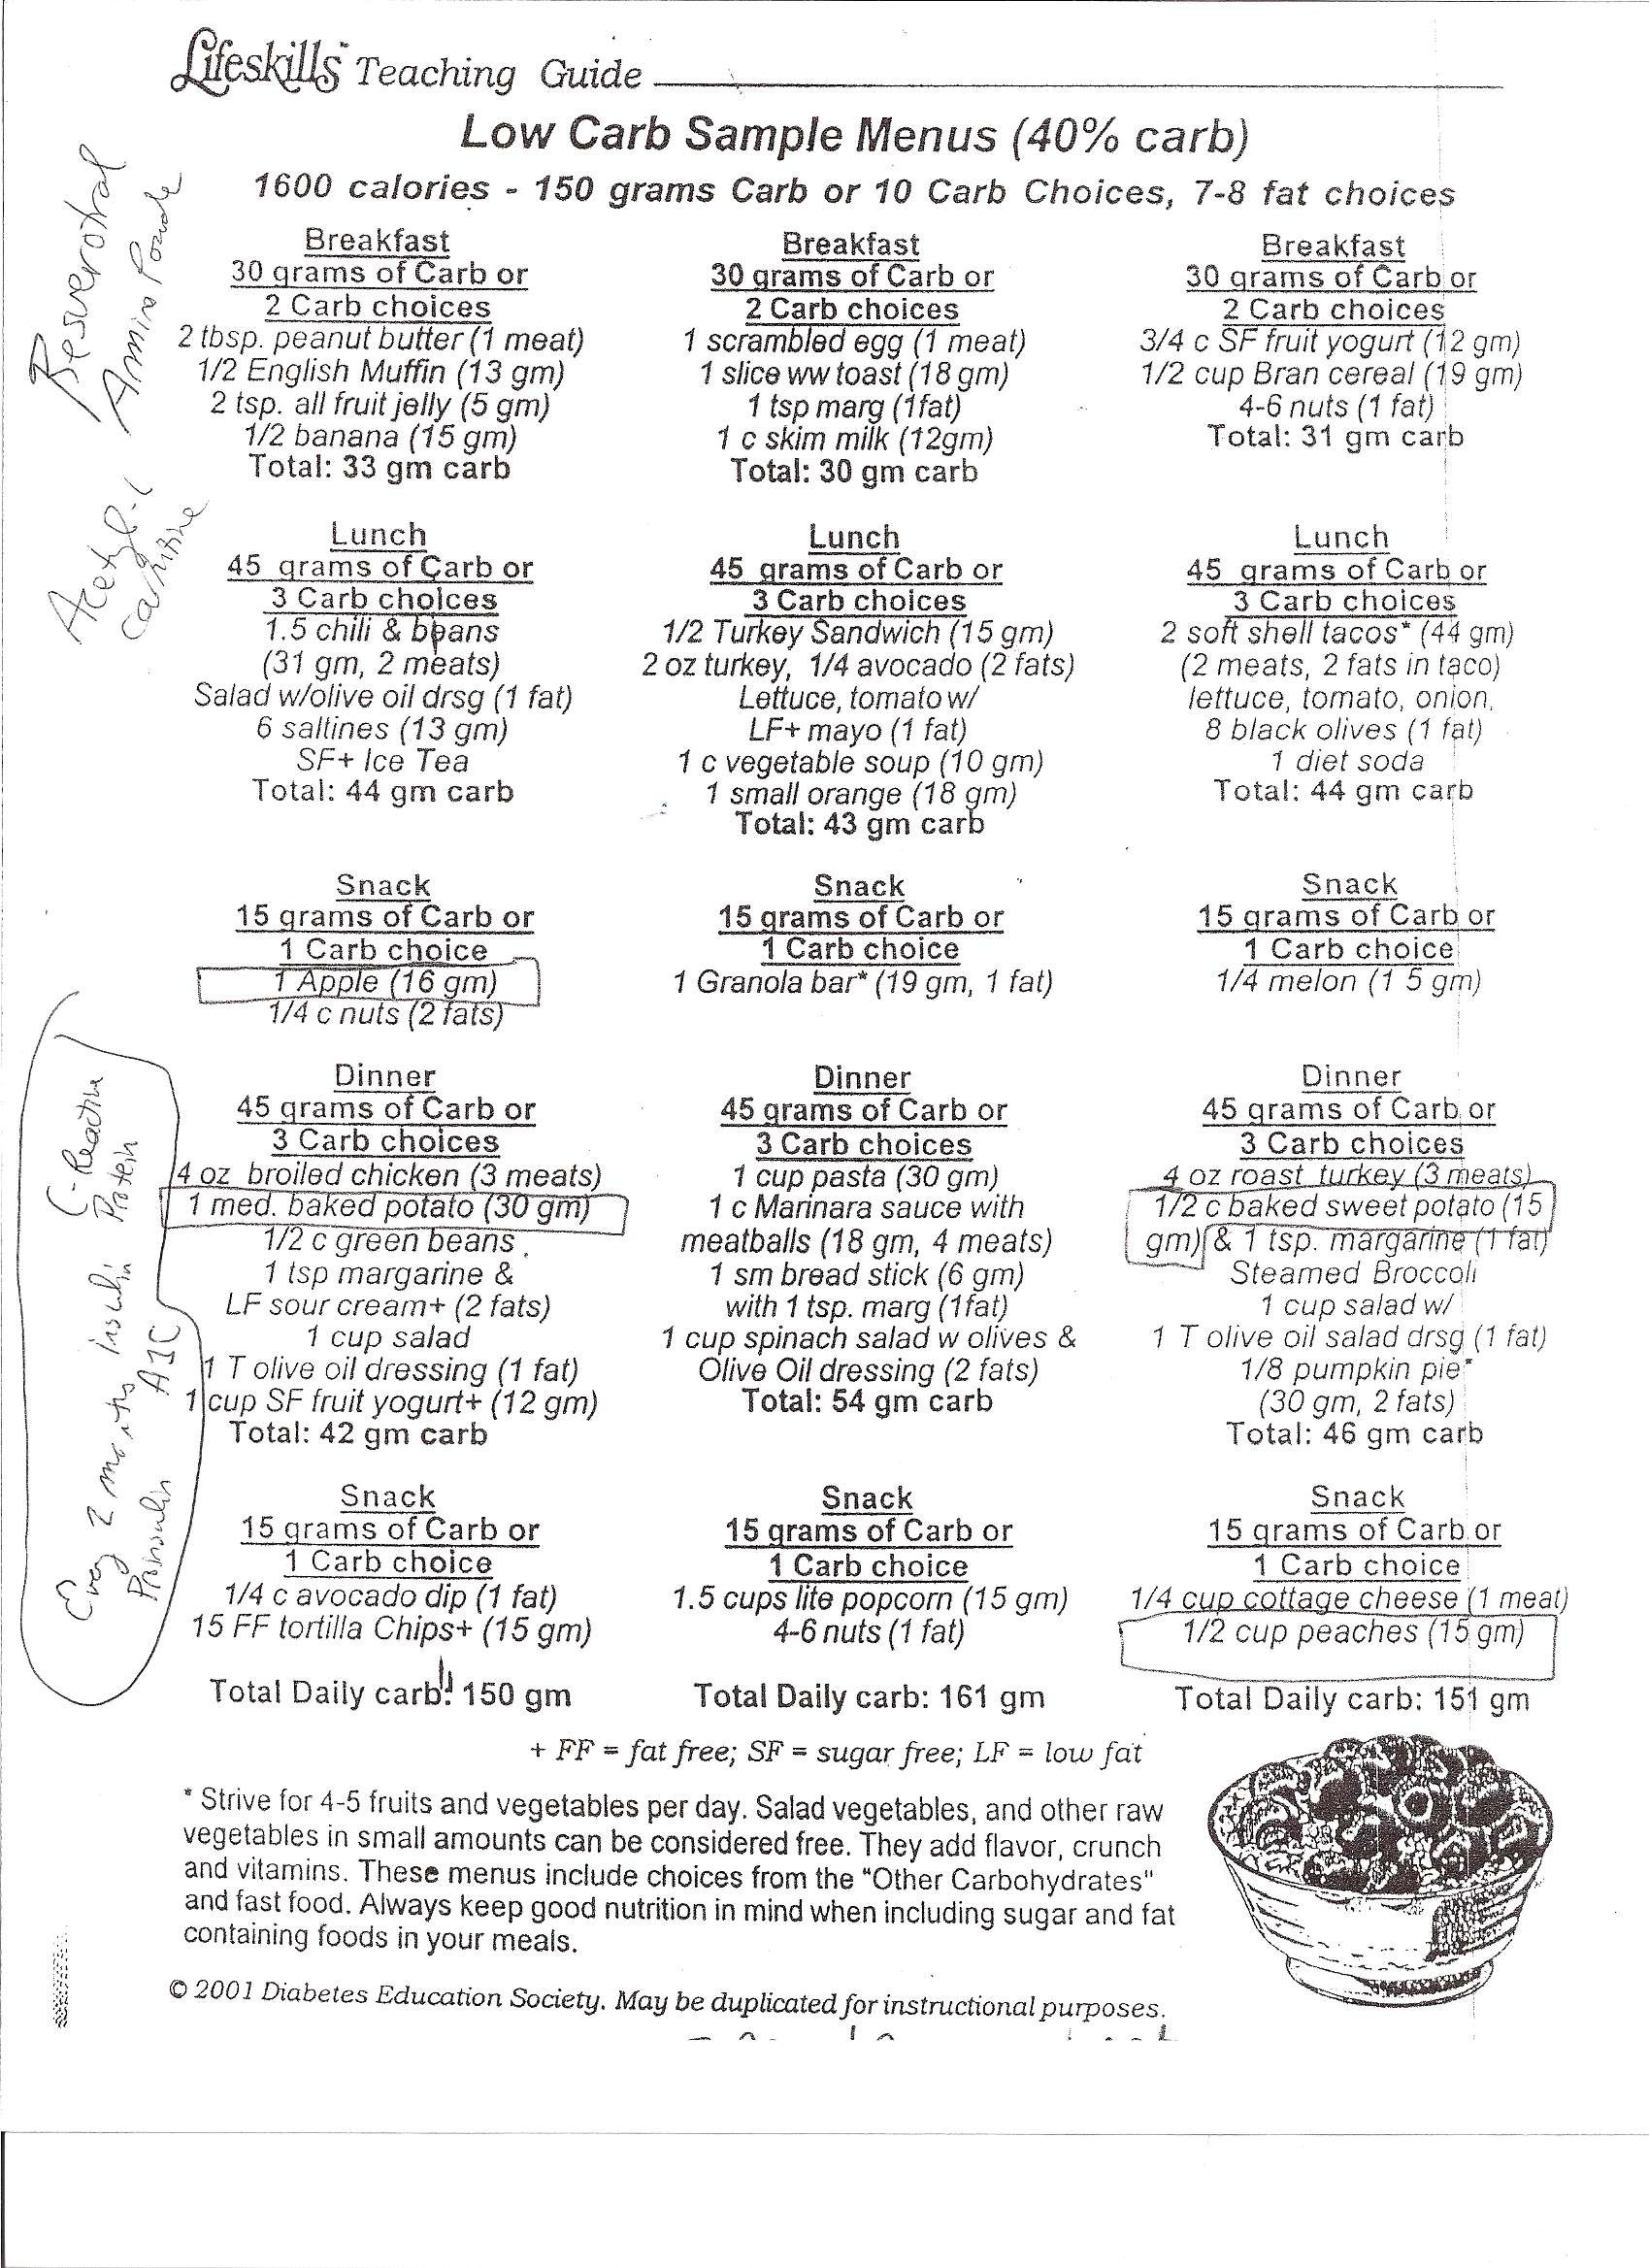 Lifeskills™ Teaching Guide
Low Carb Sample Menus (40% carb)
1600 calories - 150 grams Carb or 10 Carb Choices, 7-8 fat choices
Breakfast
30 grams of Carb or
2 Carb choices
2 tbsp. peanut butter (1 meat)
1/2 English Muffin (13 gm)
2 tsp. all fruit jelly (5 gm)
1/2 banana (15 gm)
Total: 33 gm carb
Lunch
45 grams of Carb or
3 Carb choices
1.5 chili & beans
(31 gm, 2 meats)
Salad w/olive oil drsg (1 fat)
6 saltines (13 gm)
SF+ Ice Tea
Total: 44 gm carb
Snack
15 grams of Carb or
1 Carb choice
1 Apple (16 gm)
1/4 c nuts (2 fats)
Dinner
45 grams of Carb or
3 Carb choices
4 oz broiled chicken (3 meats)
1 med. baked potato (30 gm)
1/2 c green beans
1 tsp margarine &
LF sour cream+ (2 fats)
1 cup salad
1 T olive oil dressing (1 fat)
1 cup SF fruit yogurt+ (12 gm)
Total: 42 gm carb
Snack
15 grams of Carb or
1 Carb choice
1/4 c avocado dip (1 fat)
15 FF tortilla Chips+ (15 gm)
Total Daily carb: 150 gm
Breakfast
30 grams of Carb or
2 Carb choices
1 scrambled egg (1 meat)
1 slice ww toast (18 gm)
1 tsp marg (1fat)
1 c skim milk (12gm)
Total: 30 gm carb
Lunch
45 grams of Carb or
3 Carb choices
1/2 Turkey Sandwich (15 gm)
2 oz turkey, 1/4 avocado (2 fats)
Lettuce, tomato w/
LF+ mayo (1 fat)
1 c vegetable soup (10 gm)
1 small orange (18 gm)
Total: 43 gm carb
Snack
15 grams of Carb or
1 Carb choice
1 Granola bar* (19 gm, 1 fat)
Dinner
45 grams of Carb or
3 Carb choices
1 cup pasta (30 gm)
1 c Marinara sauce with
meatballs (18 gm, 4 meats)
1 sm bread stick (6 gm)
with 1 tsp. marg (1fat)
1 cup spinach salad w olives &
Olive Oil dressing (2 fats)
Total: 54 gm carb
Snack
15 grams of Carb or
1 Carb choice
1.5 cups lite popcorn (15 gm)
4-6 nuts (1 fat)
Total Daily carb: 161 gm
Breakfast
30 grams of Carb or
2 Carb choices
3/4 c SF fruit yogurt (12 gm)
1/2 cup Bran cereal (19 gm)
4-6 nuts (1 fat)
Total: 31 gm carb
Lunch
45 grams of Carb or
3 Carb choices
2 soft shell tacos* (44 gm)
(2 meats, 2 fats in taco)
lettuce, tomato, onion,
8 black olives (1 fat)
1 diet soda
Total: 44 gm carb
Snack
15 grams of Carb or
1 Carb choice
1/4 melon (1 5 gm)
Dinner
45 grams of Carb or
3 Carb choices
4 oz roast turkey (3 meats)
1/2 c baked sweet potato (15
gm) & 1 tsp. margarine (1 fat)
Steamed Broccoli
1 cup salad w/
1 T olive oil salad drsg (1 fat)
1/8 pumpkin pie*
(30 gm, 2 fats)
Total: 46 gm carb
Snack
15 grams of Carb or
1 Carb choice
1/4 cup cottage cheese (1 meat)
1/2 cup peaches (15 gm)
Total Daily carb: 151 gm
+ FF = fat free; SF = sugar free; LF = low fat
* Strive for 4-5 fruits and vegetables per day. Salad vegetables, and other raw
vegetables in small amounts can be considered free. They add flavor, crunch
and vitamins. These menus include choices from the "Other Carbohydrates"
and fast food. Always keep good nutrition in mind when including sugar and fat
containing foods in your meals.
© 2001 Diabetes Education Society. May be duplicated for instructional purposes.
Resverotral
Amino
Acetyl-l
carnitine
Every 2 months Insulin
C-Reactive
Protein
Proinsulin A1C